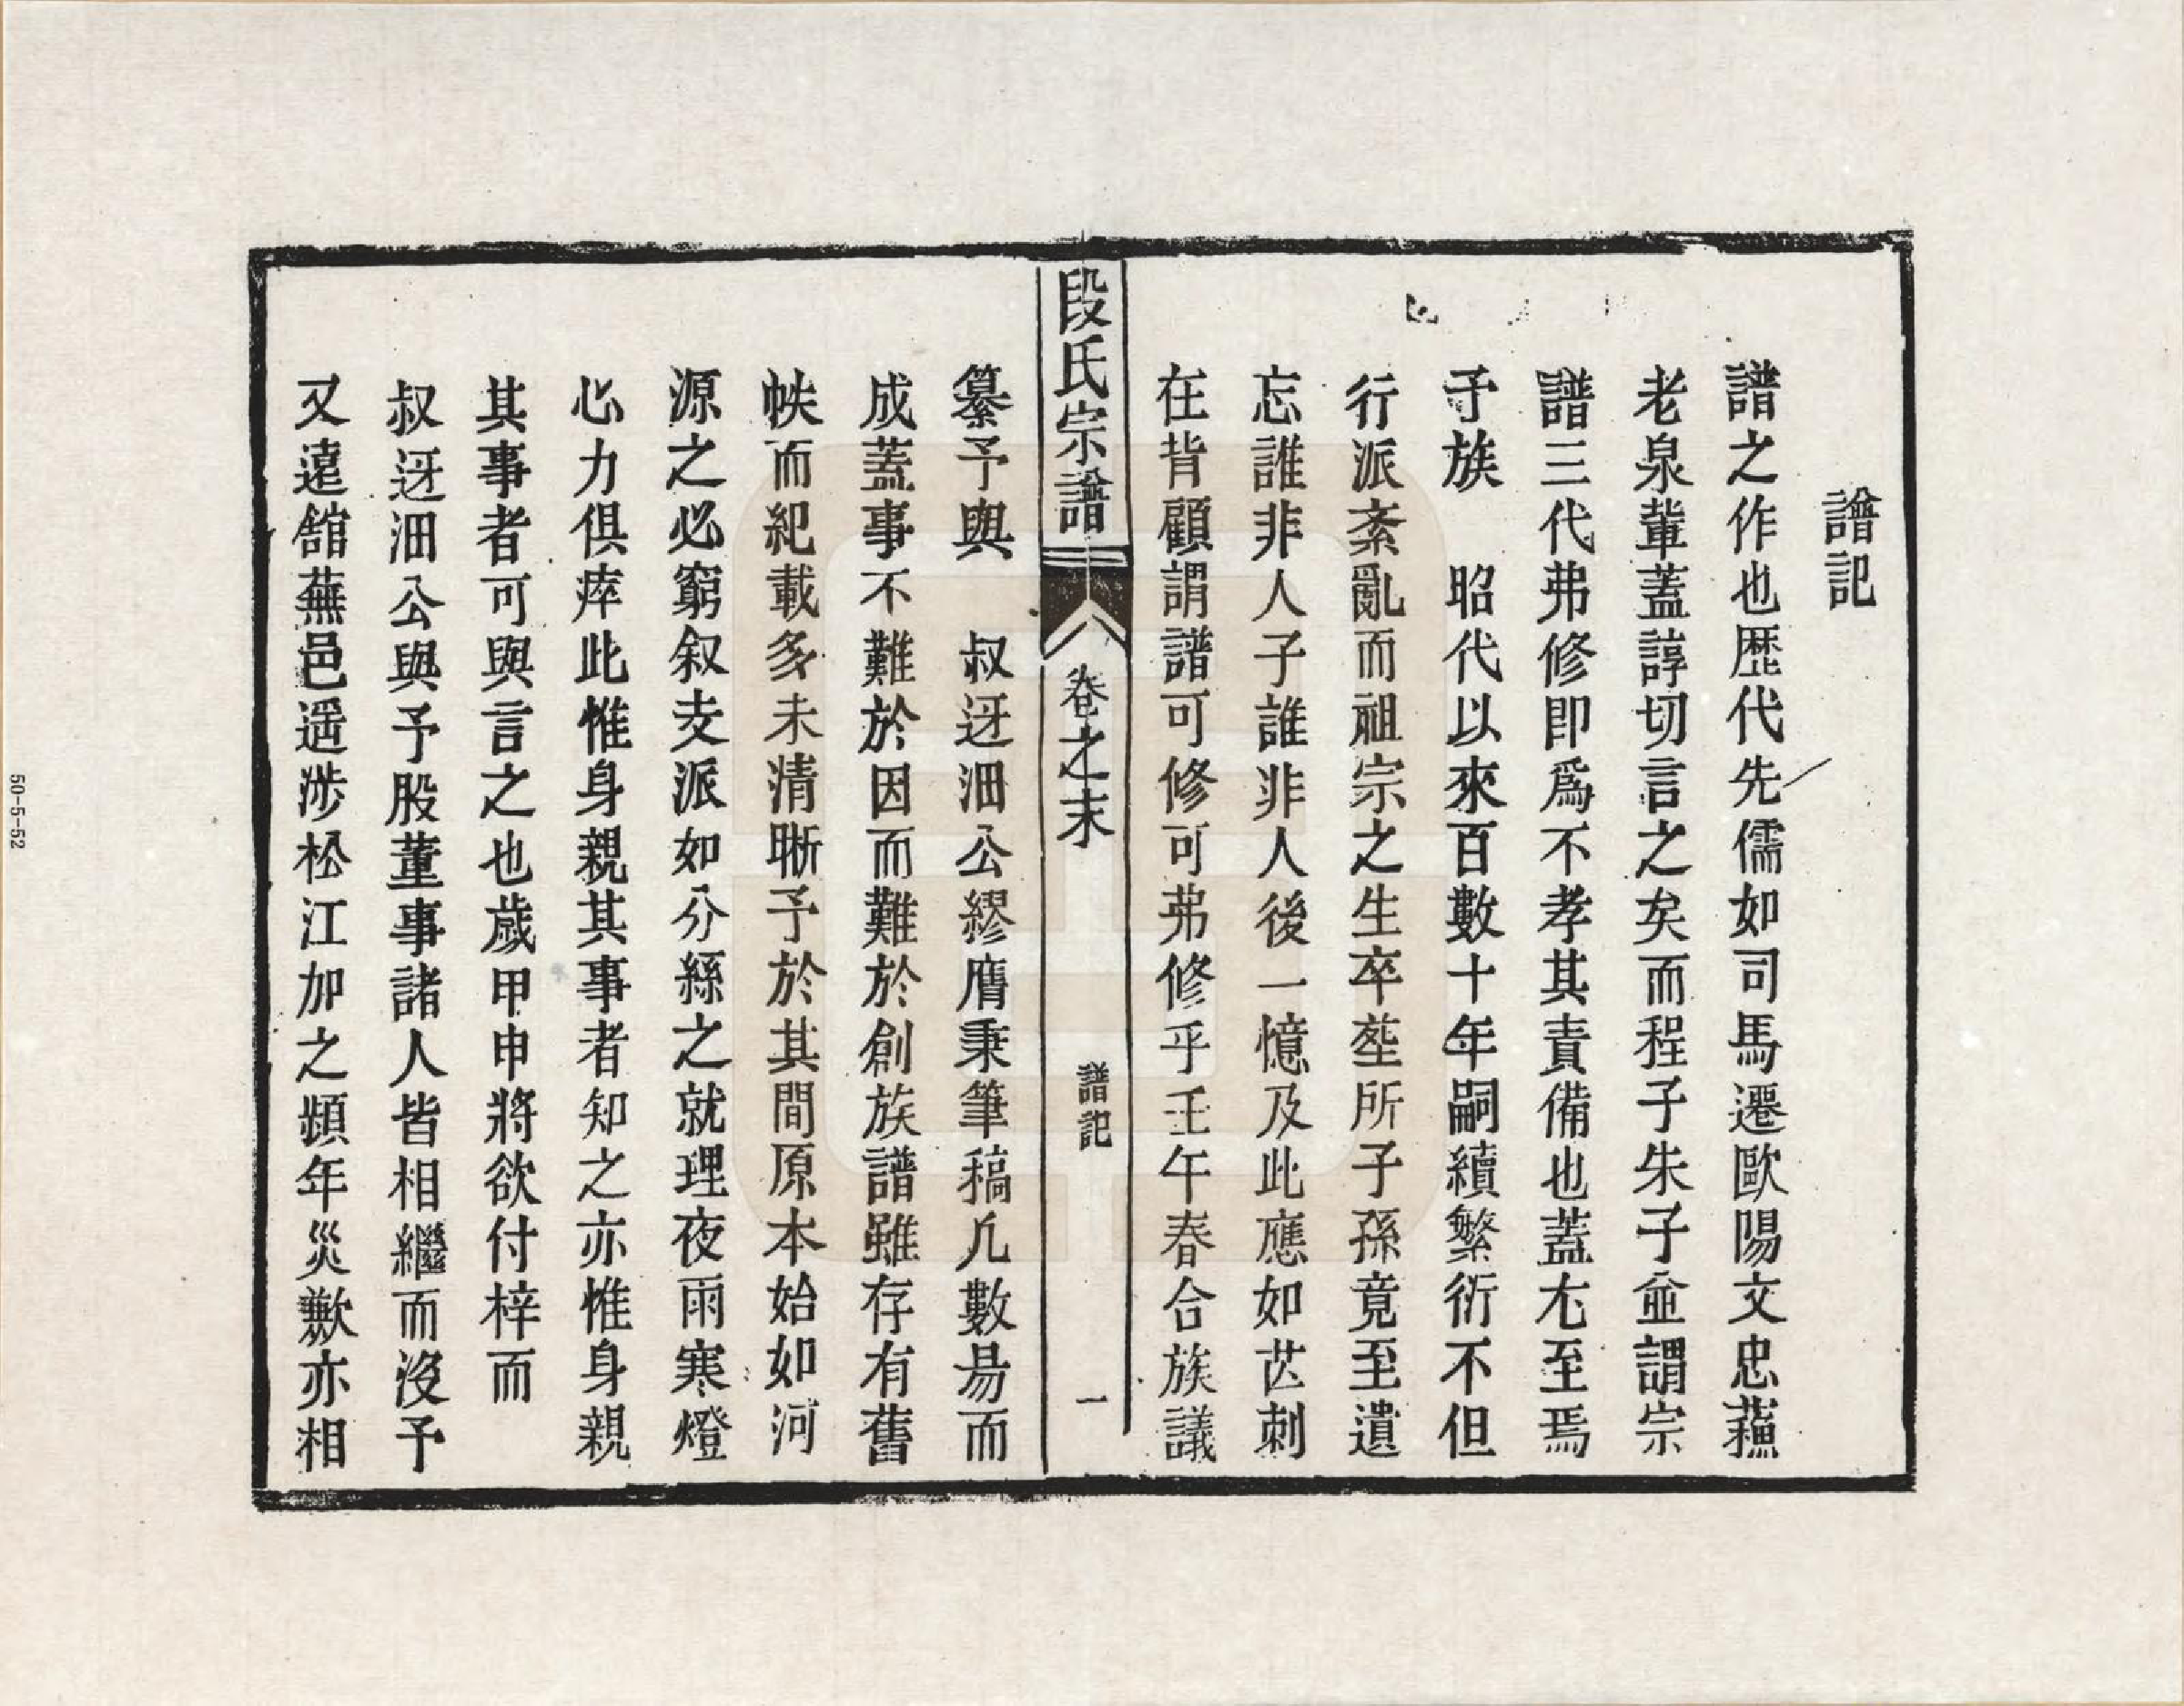 譜記
譜之作也歷代先儒如司馬遷歐陽文忠蘓
老泉輩蓋諄切言之矣而程子朱子並謂宗
譜三代弗修即爲不孝其責備也蓋尤至焉
予族　昭代以來百數十年嗣續繁衍不但
行派紊亂而祖宗之生卒塟所子孫竟至遺
忘誰非人子誰非人後一憶及此應如芒刺
在背顧謂譜可修可弗修乎壬午春合族議
段氏宗譜
卷之末
譜記
一
纂予與　叔迓沺公繆膺秉筆稿凢數易而
成蓋事不難於因而難於創族譜雖存有舊
帙而紀載多未清晰予於其間原本始如河
源之必窮叙支派如分絲之就理夜雨寒燈
心力俱瘁此惟身親其事者知之亦惟身親
其事者可與言之也歲甲申將欲付梓而
叔迓沺公與予股董事諸人皆相繼而沒予
又遠館蕪邑遥涉松江加之頻年災歉亦相
50-5-52